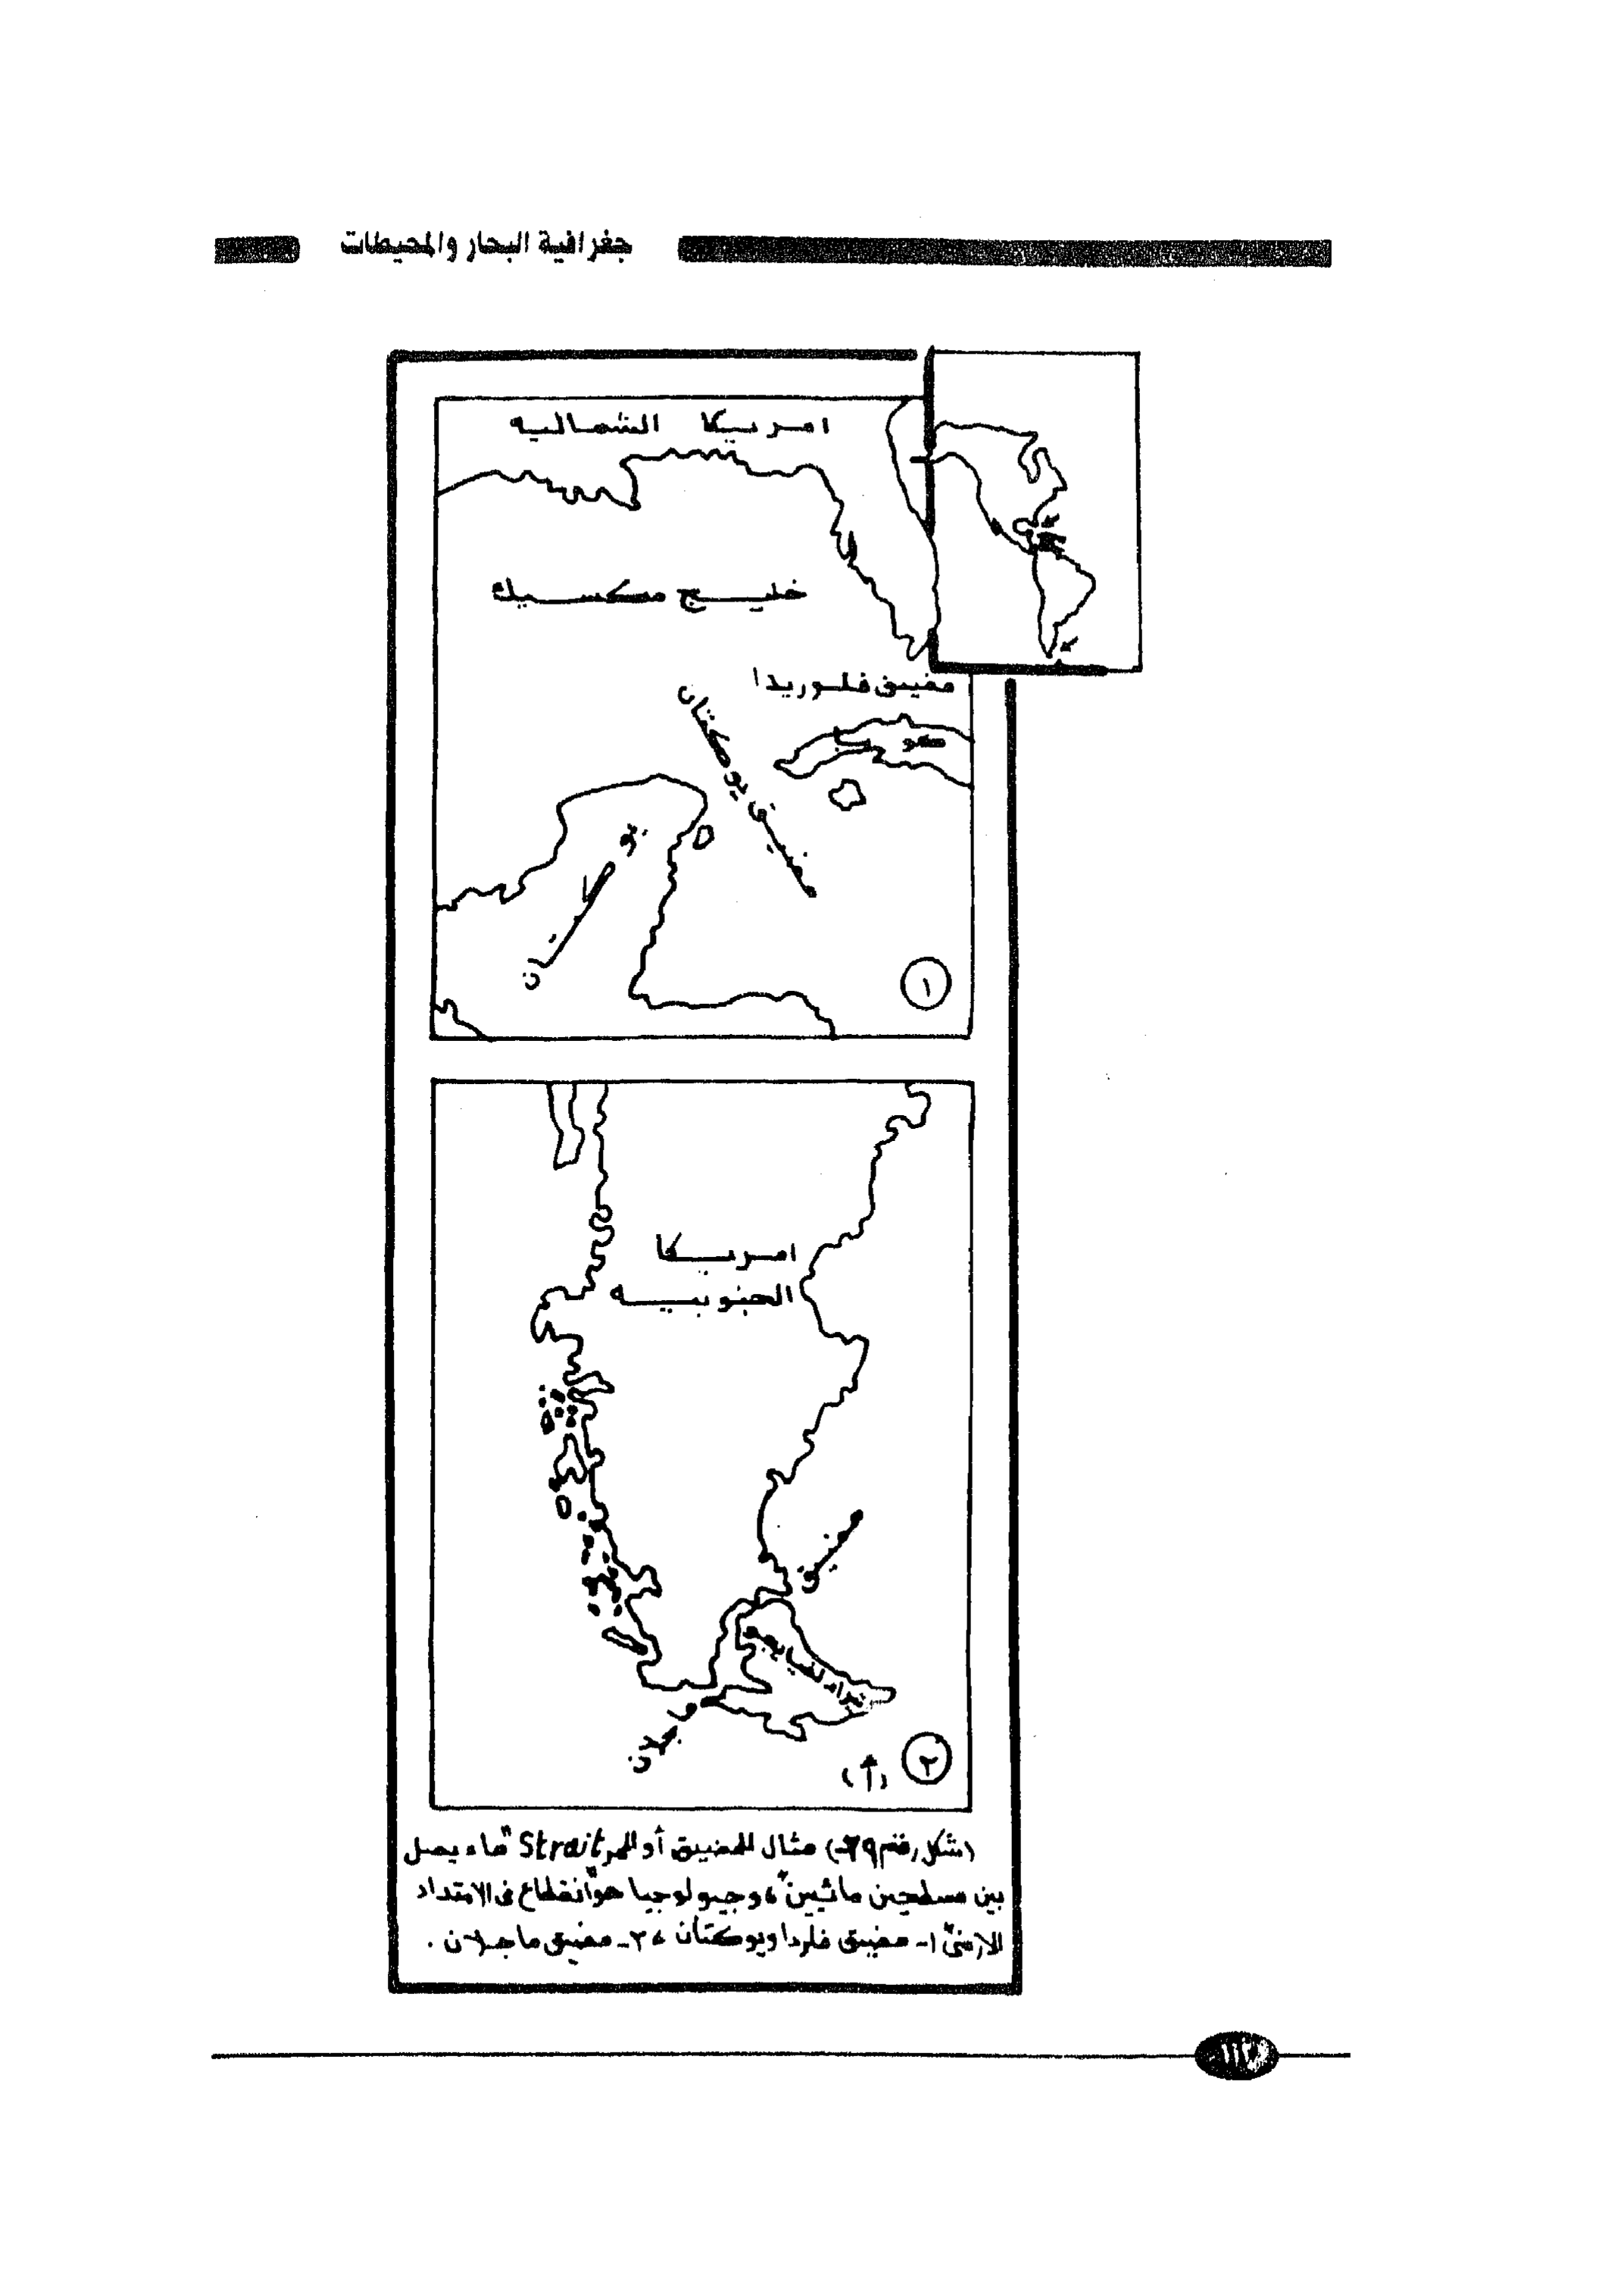 جغرافية البحار والمحيطات
امريكا الشماليه
خليج مكسيك
مضيق فلوريدا
كوبا
مضيق يوكتان
يوكاتن
١
امريكا
الجنوبيه
مضيق
ماجلان
٢
(شكل رقم ٢٩-) مثال للمضيق أو الممر Strait "ماء يصل
بين مسطحين مائيين"، وجيولوجيا هو"انقطاع فى الامتداد
الارضى" ١- مضيق فلردا ويوكتان ، ٢- مضيق ماجلان .
١١٢